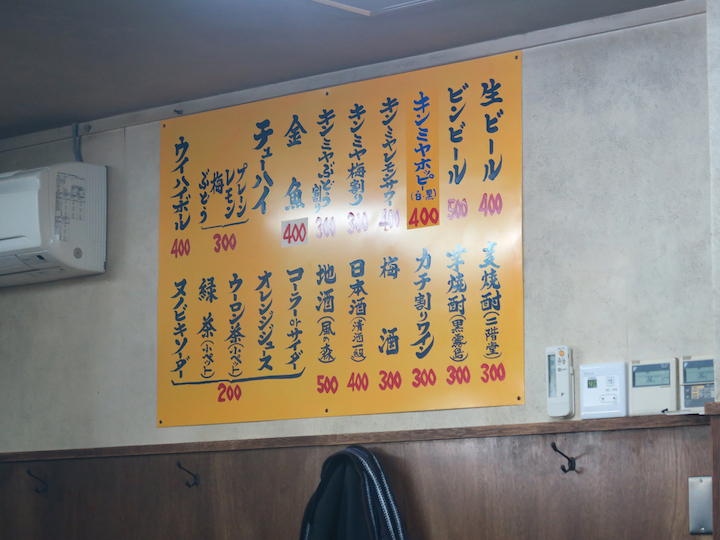 生ビール 400
ビンビール 500
キンミヤホッピー(白・黒) 400
キンミヤレモンサワー 400
キンミヤ梅割り 300
キンミヤぶどう割り 300
金魚 400
チューハイ
プレーン
レモン
梅
ぶどう
300
ウイハイボール 400
麦焼酎(二階堂) 300
芋焼酎(黒霧島) 300
カチ割りワイン 300
梅酒 300
日本酒(清酒一級) 400
地酒(風の森) 500
コーラorサイダー
オレンジジュース
ウーロン茶(小ペット)
緑茶(小ペット)
ヌノビキソーダー
200